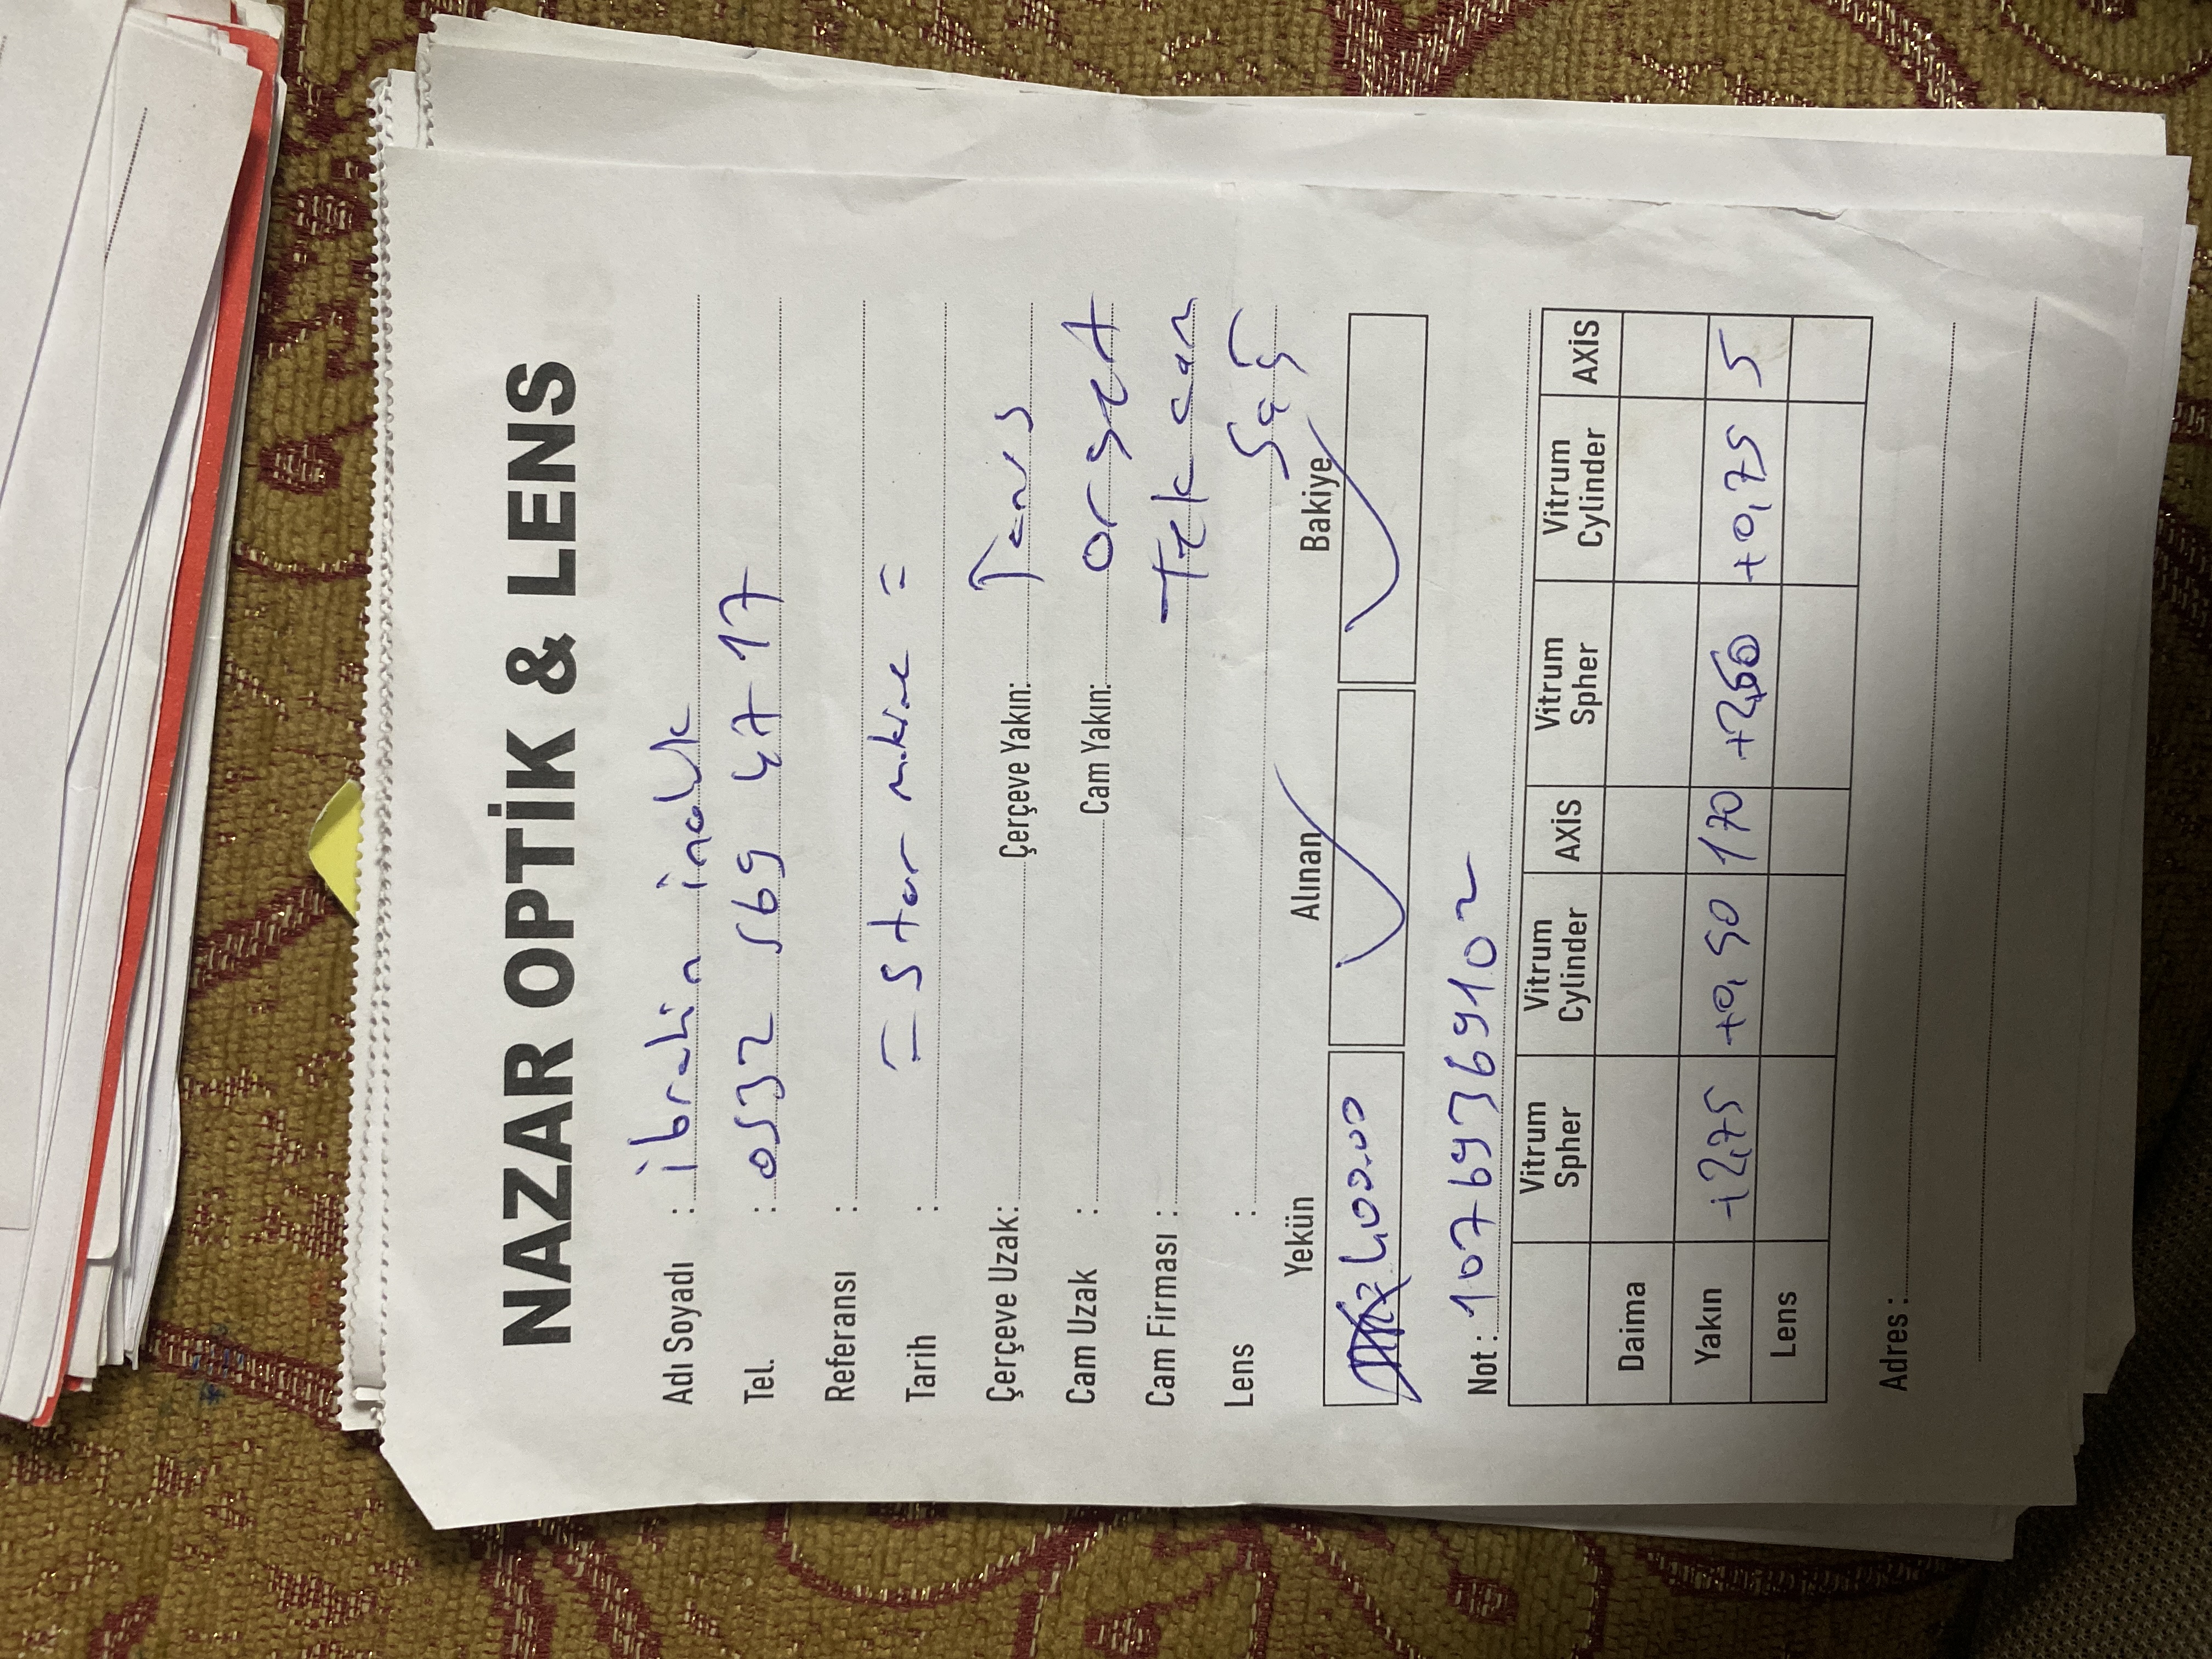 NAZAR OPTİK & LENS
Adı Soyadı : ibrahim inalık
Tel. : 0532 569 47 17
Referansı :
Tarih : = Star makine =
Çerçeve Uzak: Çerçeve Yakın:
Cam Uzak : Cam Yakın:
Cam Firması : Tek cam
Lens : Sağ
Yekün Alınan Bakiye
400.00
Not : 10769369102
Vitrum Spher Vitrum Cylinder AXİS Vitrum Spher Vitrum Cylinder AXİS
Daima
Yakın +2,75 +0,50 170 +2,50 +0,75 5
Lens
Adres :